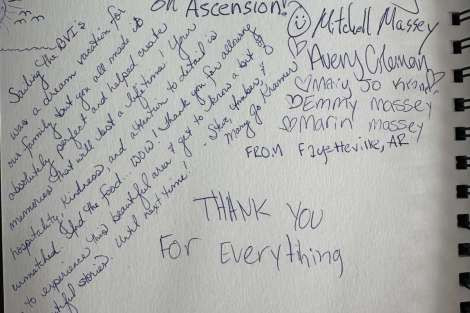 on Ascension!
Sailing the BVI's
was a dream vacation for
our family but you all made it
absolutely perfect and helped create
memories that will last a lifetime! Your
hospitality, kindness, and attention to detail is
unmatched. And the food... WOW! Thank you for allowing
to experience this beautiful area & get to know a bit of
stories. Until next time!
- Steve, Amber, &
Mary Jo
Mitchell Massey
Avery Coleman
Mary Jo
Emmy Massey
Marin Massey
From Fayetteville, AR
THANK YOU
For Everything